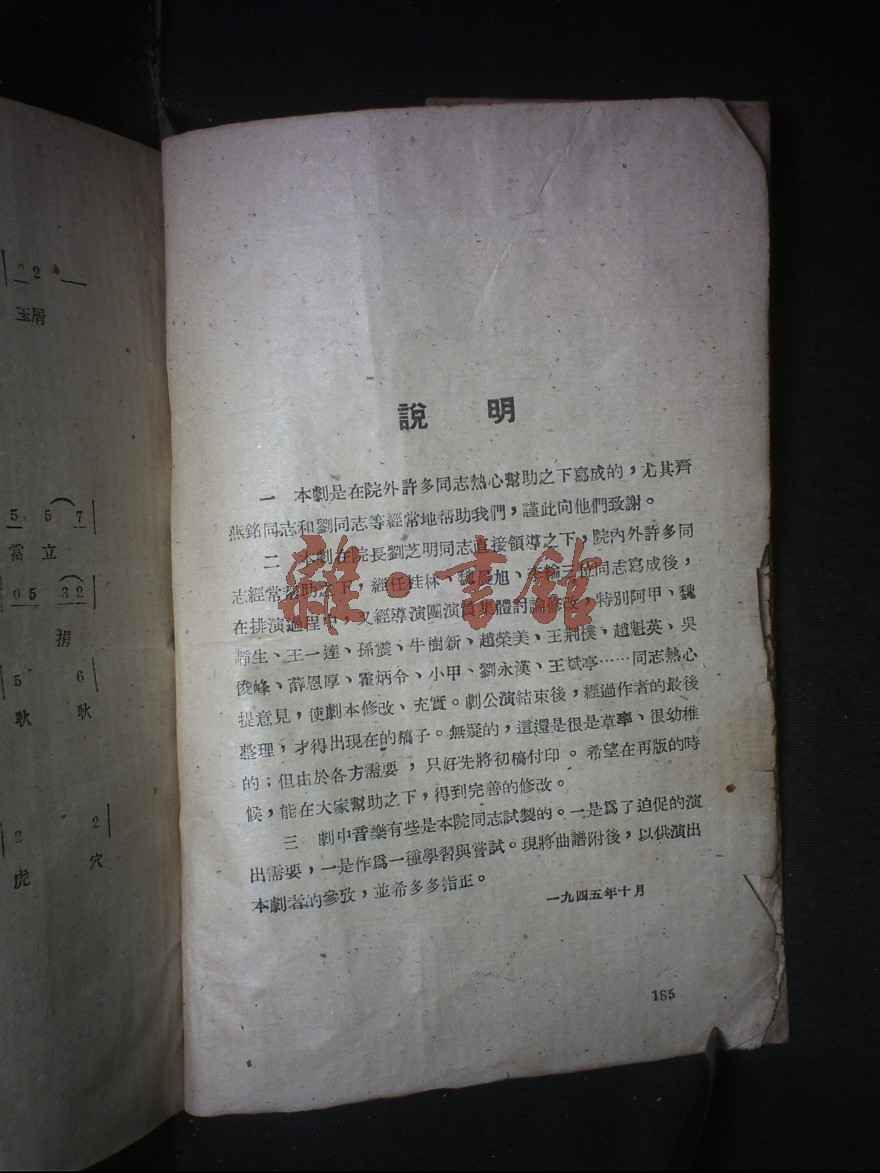 2 2
玉屑
5 5 7
當立
0 5 3 2
捐
5 6
耿 耿
2 2
虎 穴
說 明
一 本劇是在院外許多同志熱心幫助之下寫成的，尤其齊
燕銘同志和劉同志等經常地帮助我們，謹此向他們致謝。
二 本劇在院長劉芝明同志直接領導之下，院內外許多同
志經常帮助之下，經任桂林、魏晨旭、李綸三位同志寫成後，
在排演過程中，又經導演團演員集體討論修改，特別阿甲、魏
靜生、王一達、孫震、牛樹新、趙榮美、王荆樸、趙魁英、吳
俊峰、薛恩厚、霍炳令、小甲、劉永漢、王斌亭……同志熱心
提意見，使劇本修改、充實。劇公演結束後，經過作者的最後
整理，才得出現在的稿子。無疑的，這還是很是草率、很幼椎
的；但由於各方需要，只好先將初稿付印。希望在再版的時
候，能在大家幫助之下，得到完善的修改。
三 劇中音樂有些是本院同志試製的。一是爲了迫促的演
出需要，一是作爲一種學習與嘗試。現將曲譜附後，以供演出
本劇者的參攷，並希多多指正。
一九四五年十月
185
雜·書館